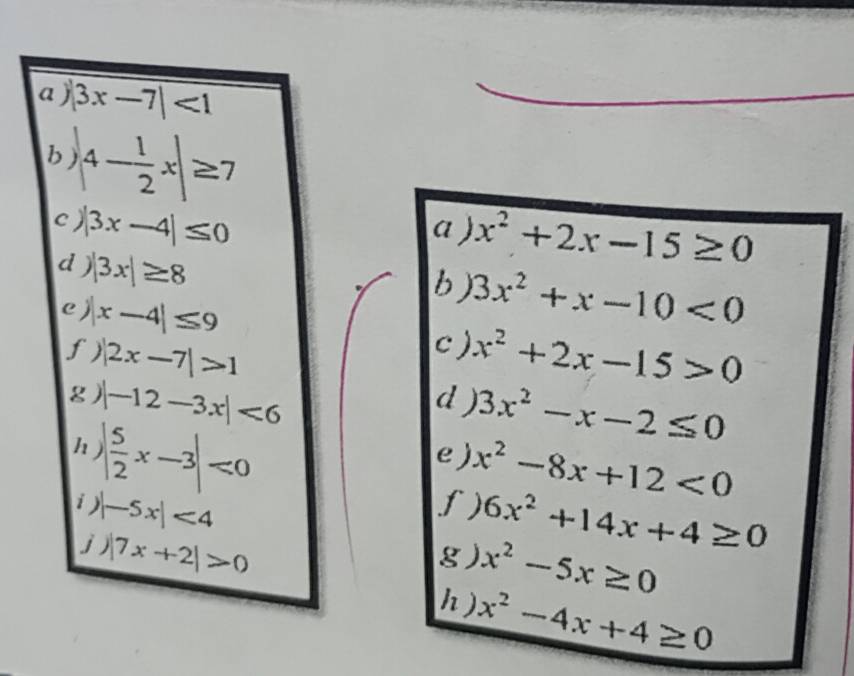 a)|3x−7|<1
b)|4−1/2 x|≥7
c)|3x−4|≤0
d)|3x|≥8
e)|x−4|≤9
f)|2x−7|>1
g)|−12−3x|<6
h)|5/2 x−3|<0
i)|−5x|<4
j)|7x+2|>0
a)x²+2x−15≥0
b)3x²+x−10<0
c)x²+2x−15>0
d)3x²−x−2≤0
e)x²−8x+12<0
f)6x²+14x+4≥0
g)x²−5x≥0
h)x²−4x+4≥0